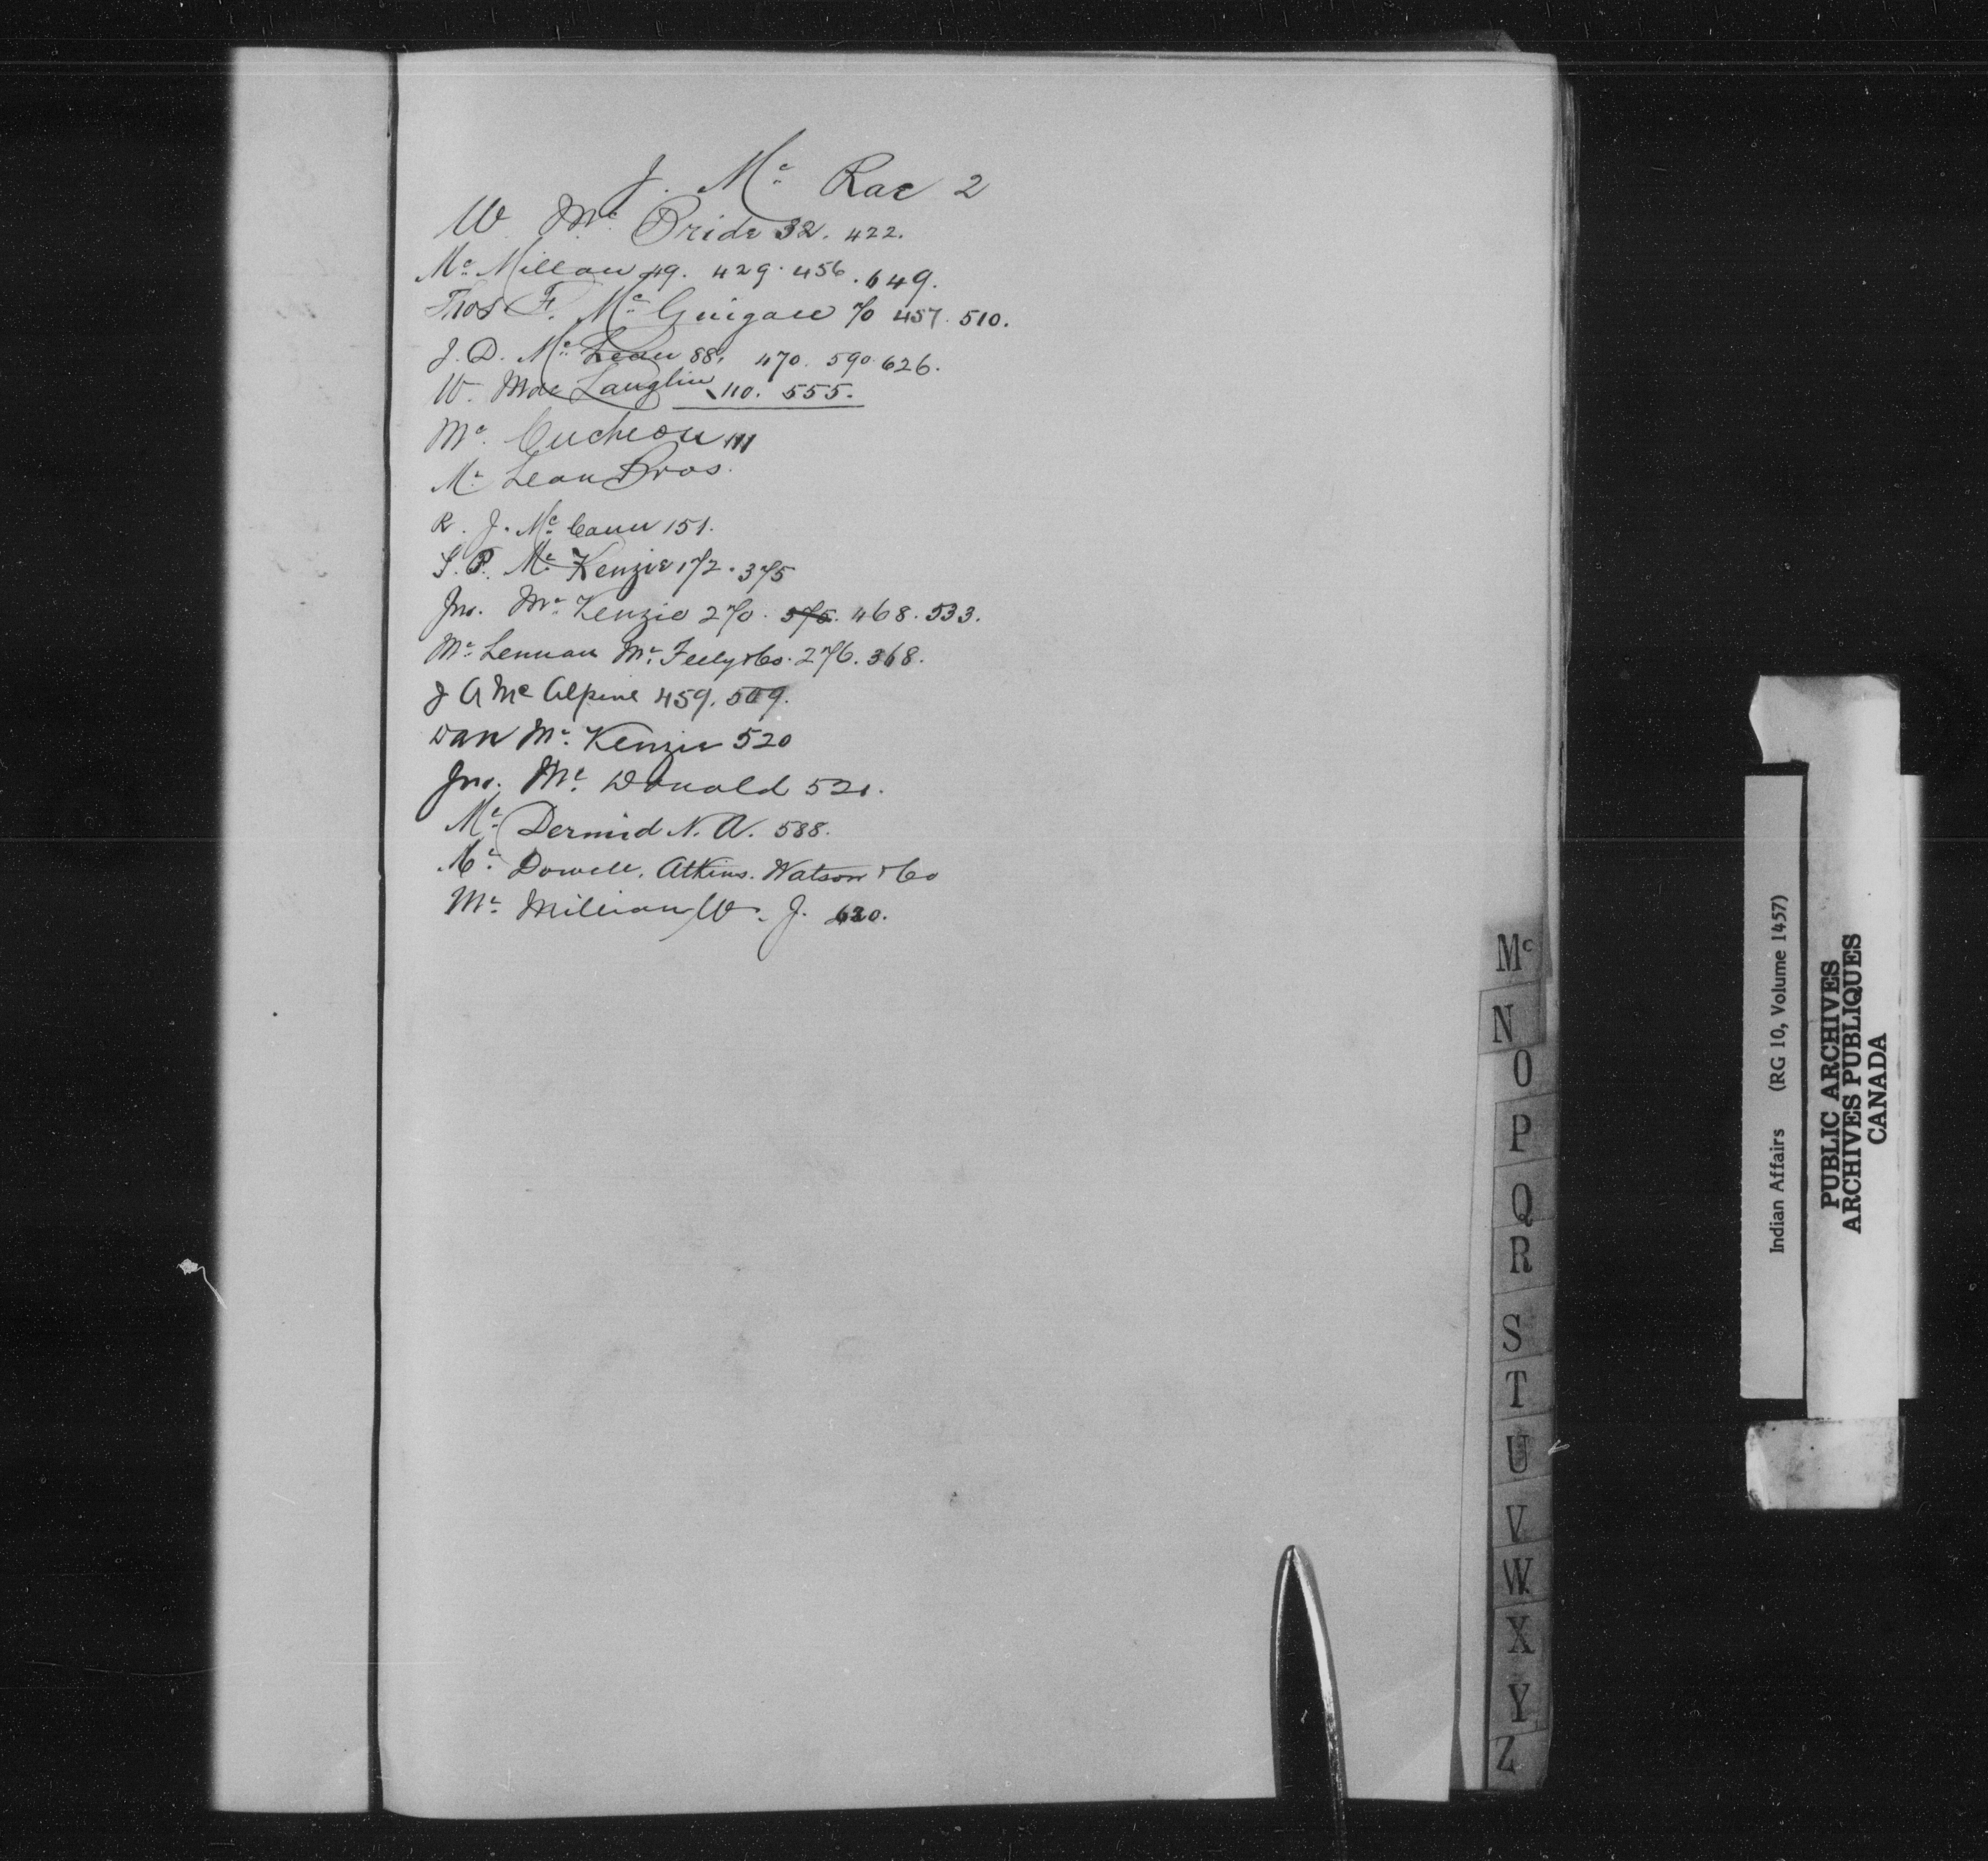 J. Mc Rae 2
W. Mc Bride 32. 422.
Mc Millan 49. 429. 456. 649.
Thos. F. Mc Guigan 70 457. 510.
J. D. Mc Lean 88. 470. 590. 626.
W. Mac Lauglin 110. 555.
Mc Cucheon 111
Mc Lean Bros.
R. J. Mc Cann 151.
S. P. Mc Kenzie 172. 375
Jno. Mc Kenzie 270. 375. 468. 533.
Mc Lennan Mc Feely & Co. 276. 368.
J A Mc Alpine 459. 509.
Dan Mc Kenzie 520
Jno. Mc Donald 521.
Mc Dermid N. A. 588.
Mc Dowell. Atkins. Watson & Co
Mc Millian W. J. 620.
Mc
N
O
P
Q
R
S
T
U
V
W
X
Y
Z
Indian Affairs (RG 10, Volume 1457)
PUBLIC ARCHIVES
ARCHIVES PUBLIQUES
CANADA